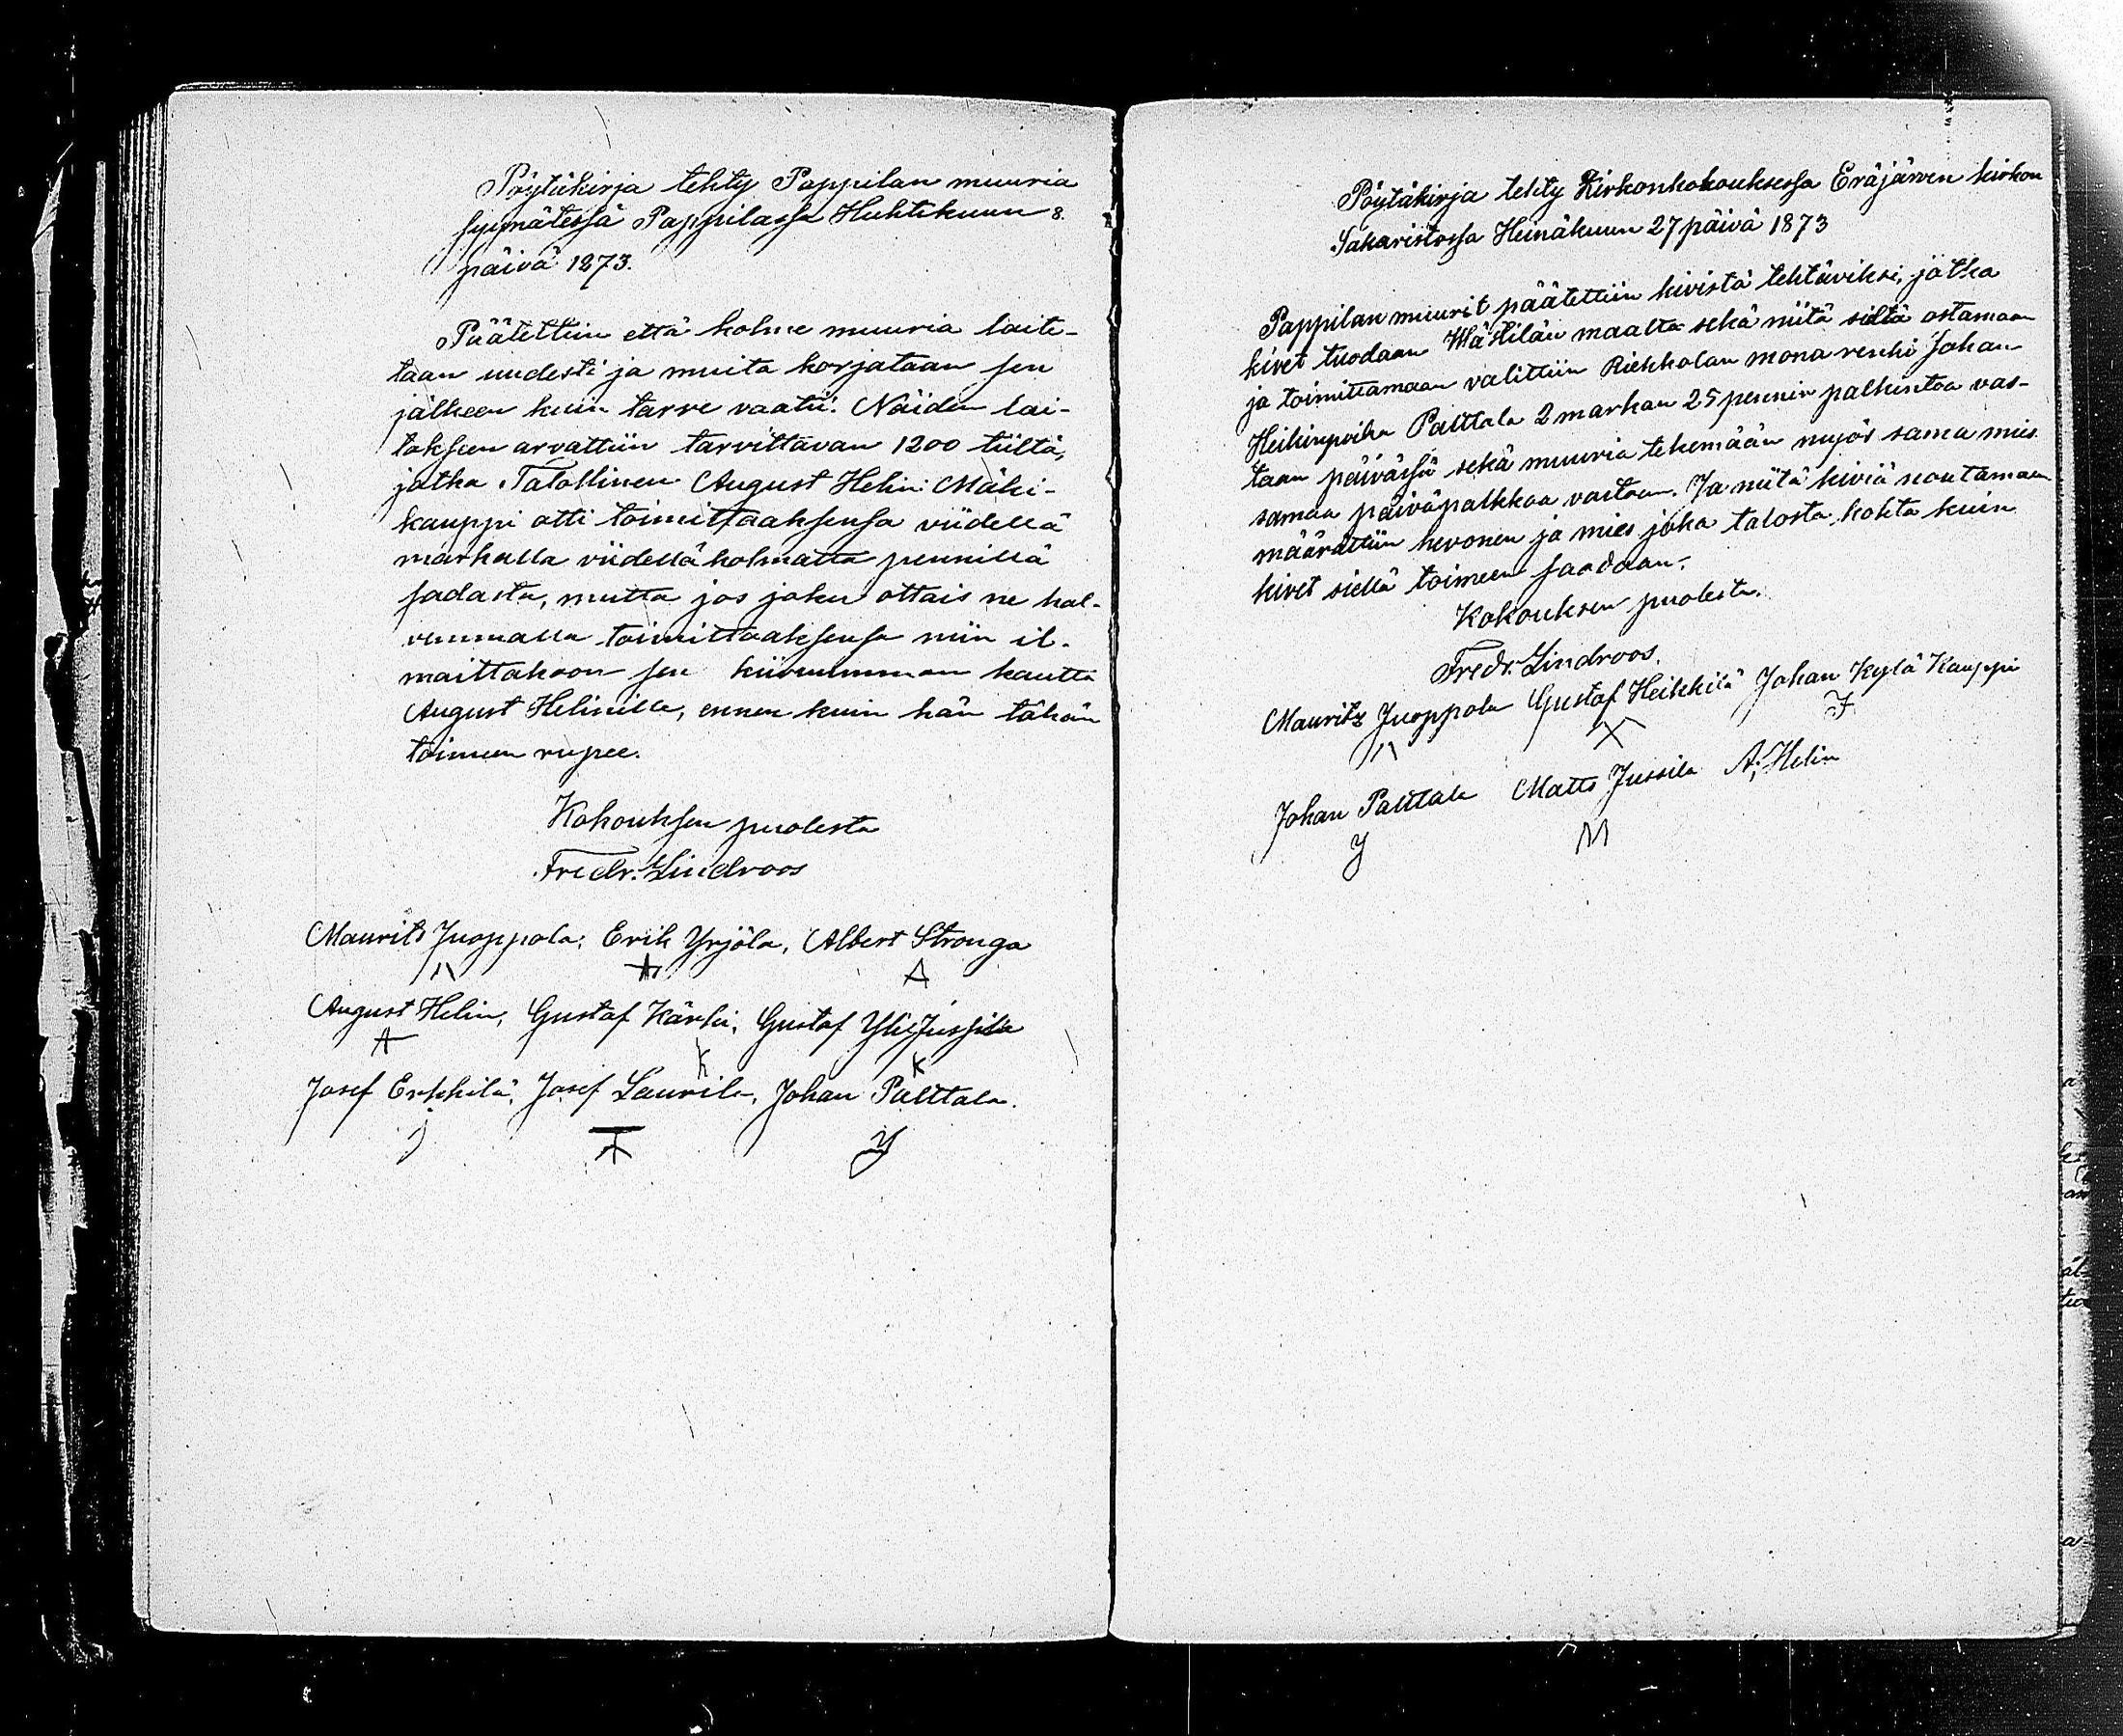 Pöytäkirja tehty Pappilan muuria
syynätessä Pappilassa Huhtikuun 8.
päivä 1873.
Päätettiin että kolme muuria laite-
taan uudesti ja muita korjataan sen
jälkeen kuin tarve vaatii. Näiden lai-
toksen arvattiin tarvittavan 1200 tiiltä,
jotka Talollinen August Helin Mäki-
kauppi otti toimittaaksensa viidellä
markalla viidelläkolmatta pennillä
sadasta, mutta jos joku ottais ne hal-
vemmalla toimittaaksensa niin il-
moittakoon sen kiiruumman kautta
August Helinille, ennen kuin hän tähän
toimeen rupee.
Kokouksen puolesta
Fredr. Lindroos
Maurits Juoppola, Erik Yrjölä, Albert Stronga
A
August Helin, Gustaf Kärki, Gustaf YliJussila
A K K
Josef Erkkilä, Josef Laurila, Johan Palttala.
j Y
Pöytäkirja tehty Kirkonkokouksessa Eräjärven kirkon
Sakaristossa Heinäkuun 27 päivä 1873
Pappilan muurit päätettiin kivistä tehtäviksi, jotka
kivet tuodaan Wästilän maalta sekä niitä sieltä ostamaan
ja toimittamaan valittiin Riekkolan renki Johan
Heikinpoika Palttala 2 markan 25 pennin palkintoa vas-
taan päivässä sekä muuria tekemään myös sama mies
samaa päiväpalkkaa vastaan. Ja niitä kiviä noutamaan
määrättiin hevonen ja mies joka talosta, kohta kuin
kivet siellä toimeen saadaan.
Kokouksen puolesta.
Fredr. Lindroos.
Mauritz Juoppola Gustaf Heikkilä Johan Kylä Kauppi
X J
Johan Palttala Matts Jussila A. Helin
Y M